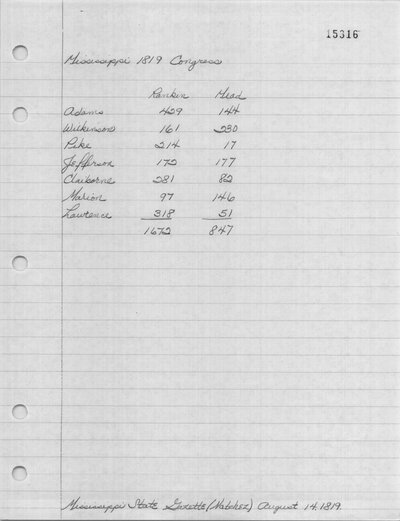 15316
Mississippi 1819 Congress
Rankin Mead
Adams 429 144
Wilkinson 161 230
Pike 214 17
Jefferson 172 177
Claiborne 281 82
Marion 97 146
Lawrence 318 51
1672 847
Mississippi State Gazette (Natchez) August 14, 1819.